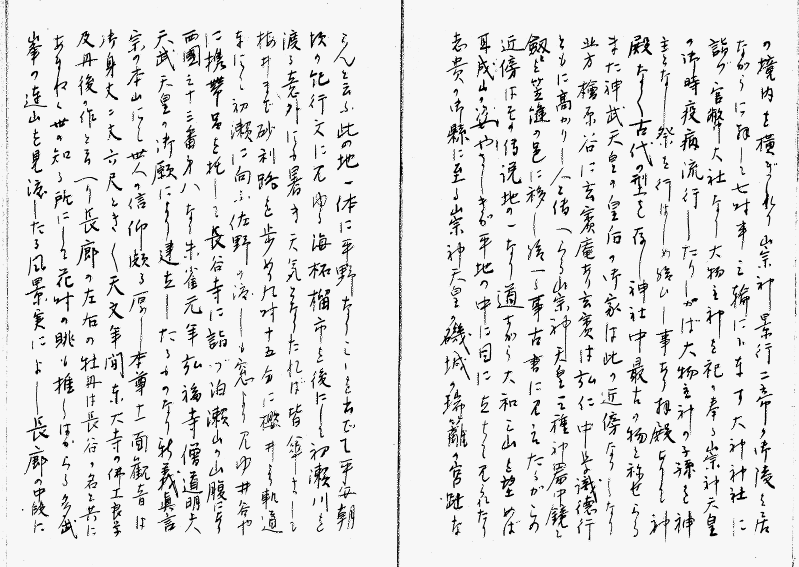 の境内を横ぎれり崇神景行二帝の御陵を左
ながらに拝して七時半三輪に下車す大神神社に
詣づ官幣大社なり大物主神を祀り奉る崇神天皇
の御時疫病流行したりしかば大物主神の子孫を神
主となし祭を行はしめ給ひし事あり拝殿ありて神
殿なく古代の型を存し神社中最古の物と称せらる
また神武天皇の皇后の御家は此の近傍なりしなり
北方檜原谷に玄賓庵あり玄賓は弘仁中の人にて徳行
ともに高かりし人と伝へらる崇神天皇三種神器中鏡と
剱とを笠縫の邑に移し給へる事古書に見えたるがこの
近傍はその伝説地の一なり道すがら大和三山を望めば
耳成山の姿やさしきが平地の中に目に立ちて見られたり
志貴の御縣に至る崇神天皇の磯城の瑞籬の宮趾な
らんと云ふ此の地一体に平野なりここを出でて平安朝
頃の紀行文に見ゆる海柘榴市を後にして初瀬川を
渡る意外にも暑き天気となりたれば皆傘さして
桜井まで砂利路を歩めり九時十五分に桜井より軌道
にて初瀬に向ふ佐野の渡しも窓より見ゆ井谷や
に携帯品を托して長谷寺に詣づ泊瀬山の山腹にあり
西國三十三番第八なり朱雀元年弘福寺僧道明
天武天皇の御願により建立したるものなり新義真言
宗の本山にして世人の信仰頗る厚し本尊十一面観音は
御身丈二丈六尺ときく天文年間東大寺の佛工良学
及丹後の作と云へり長廊の左右の牡丹は長谷の名と共に
あまねく世の知る所にして花時の眺も推しはからる多武
峯の連山を見渡したる風景実によし長廊の中段に